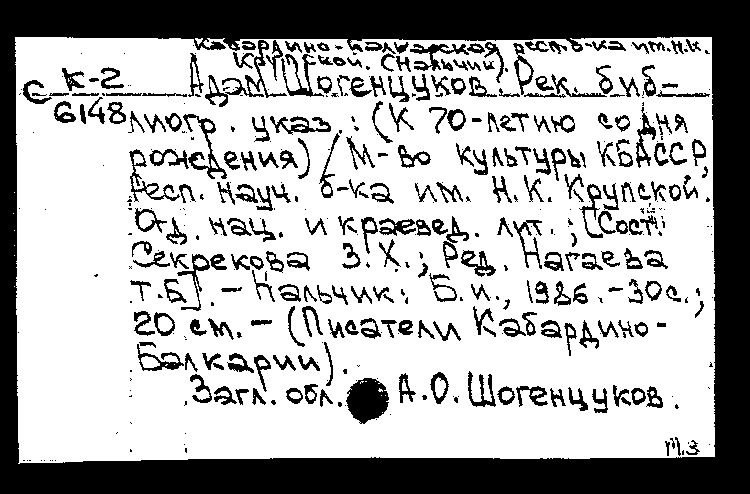 Кабардино-Балкарская респ. б-ка им. Н.К.
Крупской. (Нальчик).
С К-2
6148
Адам Шогенцуков: Рек. биб-
лиогр. указ.: (К 70-летию со дня
рождения) / М-во культуры КБАССР,
Респ. науч. б-ка им. Н.К. Крупской.
Отд. нац. и краевед. лит.; [Сост.
Секрекова З.Х.; Ред. Нагаева
Т.Б]. - Нальчик: Б.и., 1986. - 30 с.;
20 см. - (Писатели Кабардино-
Балкарии).
Загл. обл. А.О. Шогенцуков.
М.З